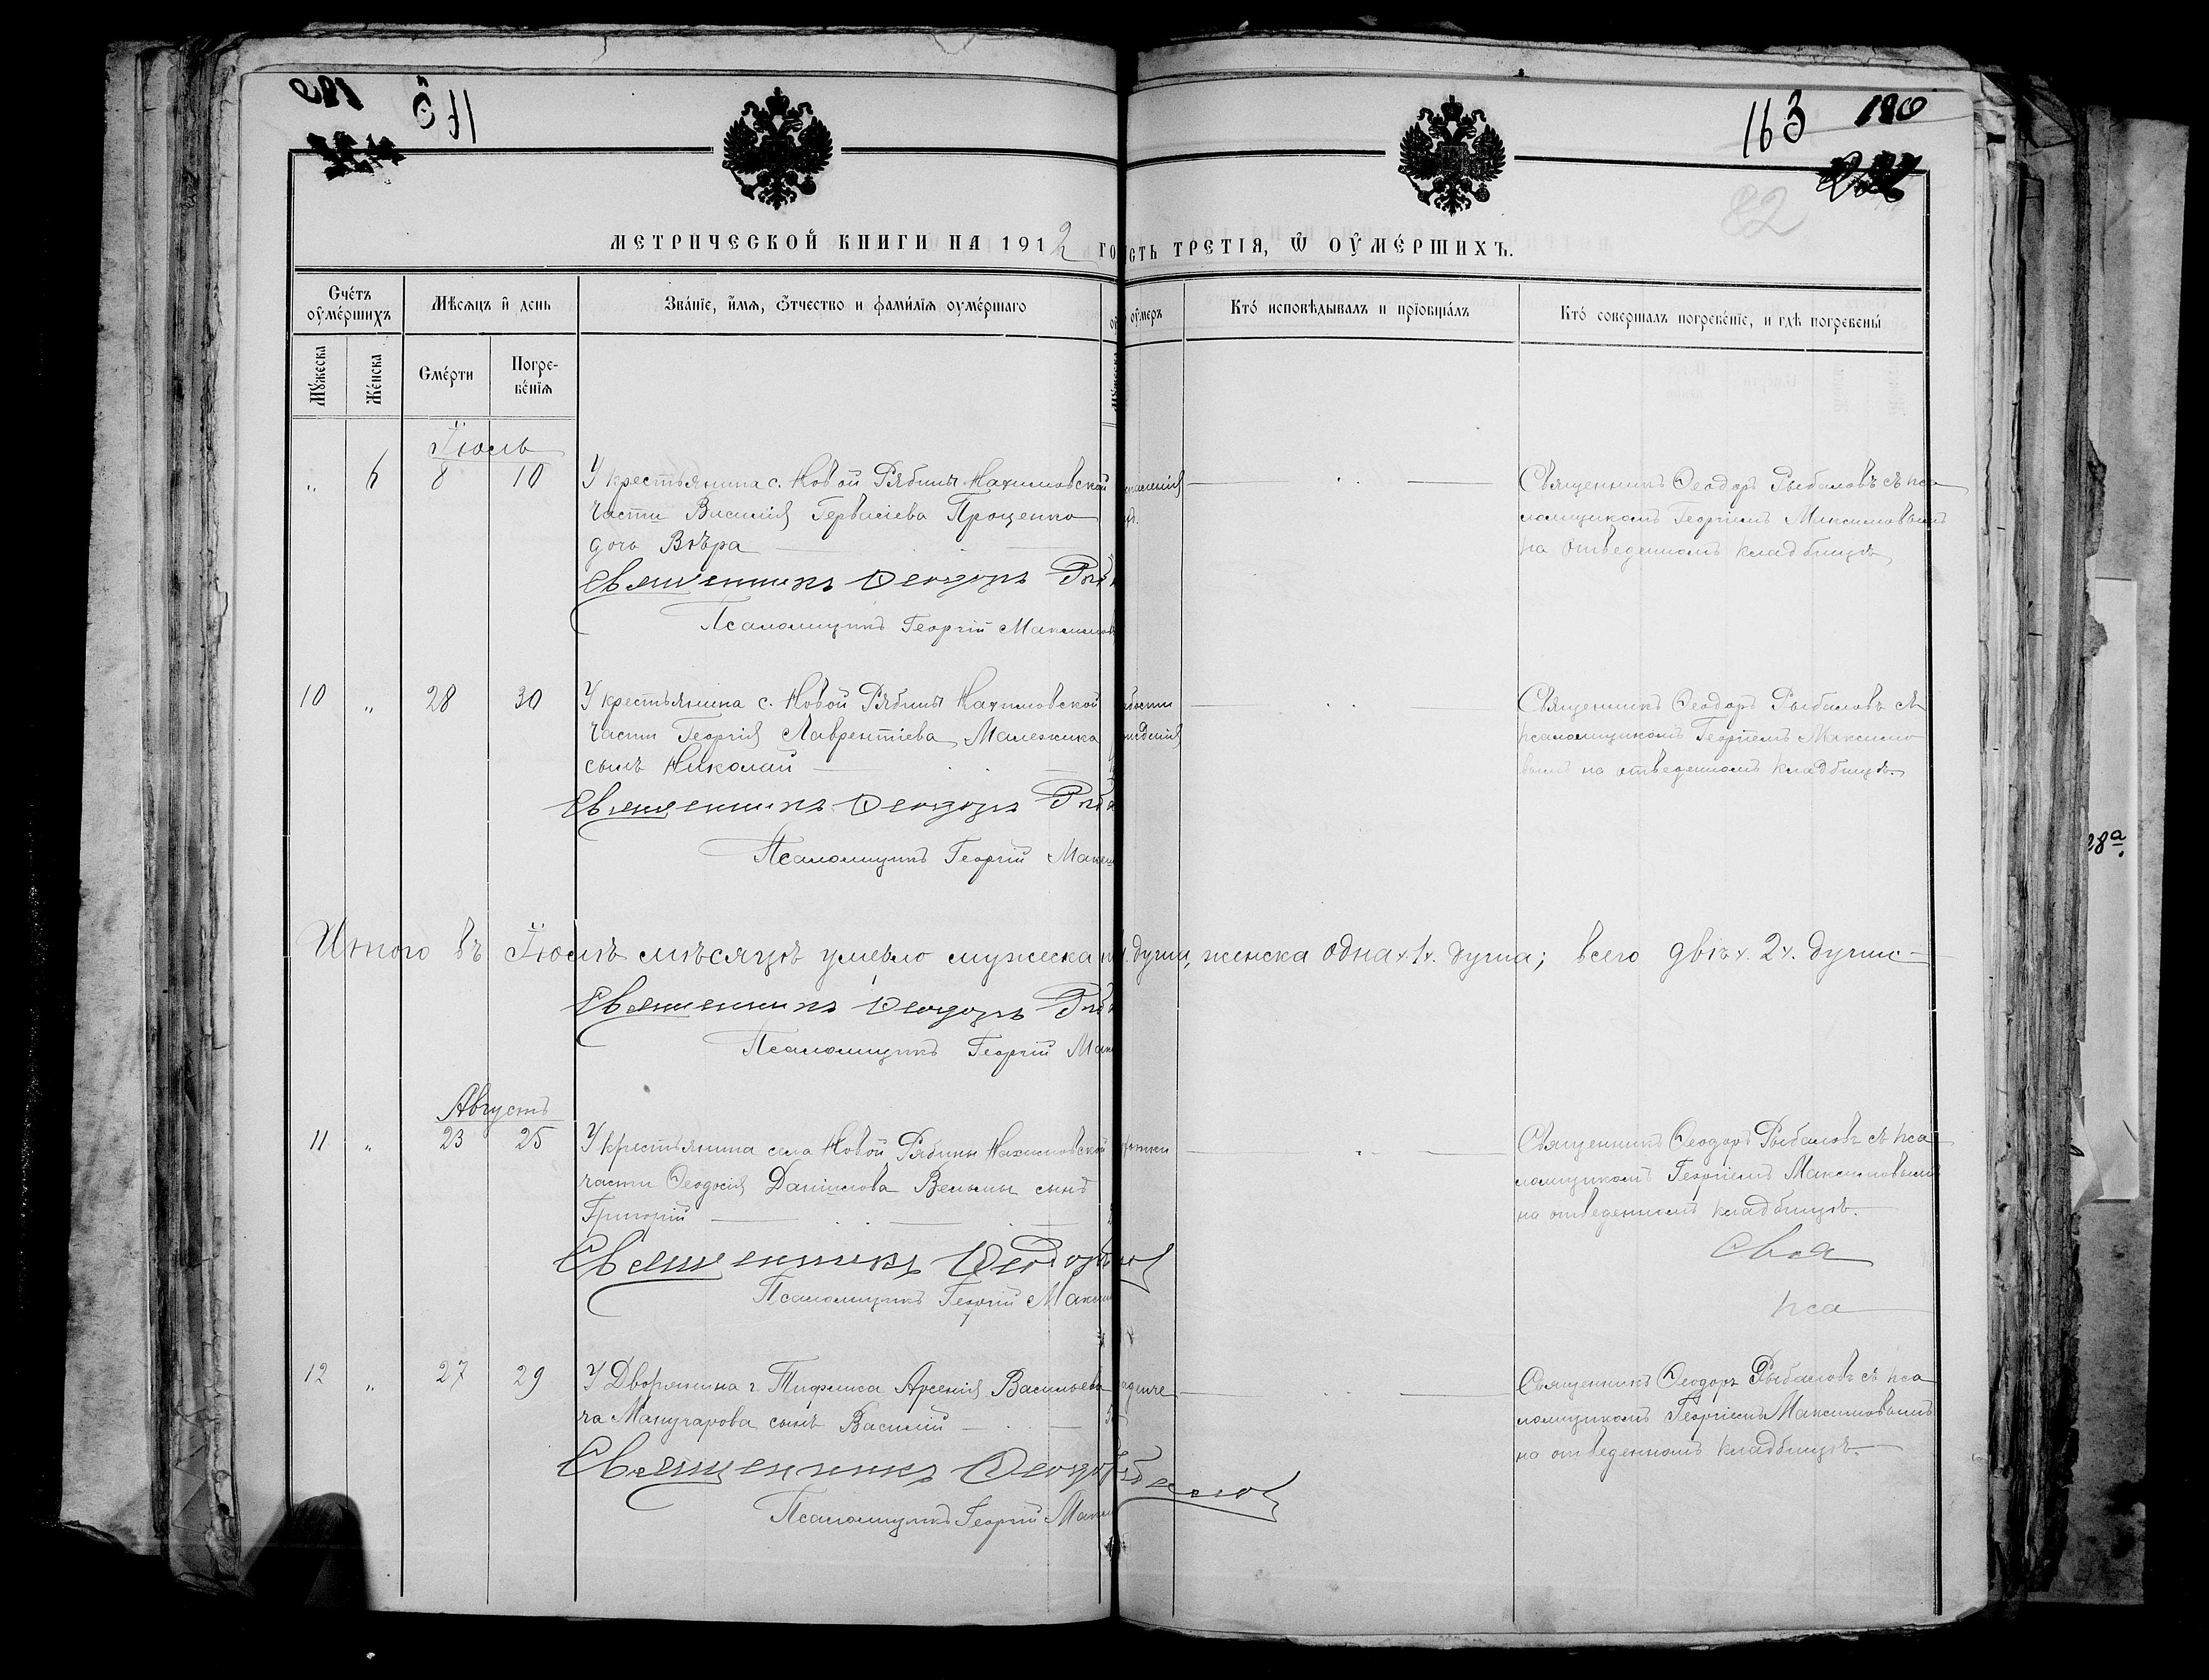 163 180
82
МЕТРИЧЕСКОЙ КНИГИ НА 1912 ГО
СТЬ ТРЕТІЯ, Ѿ ОУМЕРШИХЪ.
Счетъ оумершихъ
Мѣсяцъ и день
Званіе, имя, отчество и фамилія оумершаго
оумеръ
Кто исповѣдывалъ и пріобщалъ
Кто совершалъ погребеніе, и гдѣ погребены
Мужеска
Женска
Смерти
Погребенія
Мужеска
Іюль
„ 6 8 10
У крестьянина с. Новой Рябины Нахимовской
части Василія Гервасіева Проценко
дочь Вѣра
Священникъ Ѳеодоръ Рыб
Псаломщикъ Георгій Максимов
Священникъ Ѳеодоръ Рыбаловъ съ пса
ломщикомъ Георгіемъ Максимовымъ
на отведенномъ кладбищѣ
10 „ 28 30
У крестьянина с. Новой Рябины Нахимовской
части Георгія Лаврентіева Малежика
сынъ Николай
Священникъ Ѳеодоръ Рыба
Псаломщикъ Георгій Макси
Священникъ Ѳеодоръ Рыбаловъ съ
псаломщикомъ Георгіемъ Максимо
вымъ на отведенномъ кладбищѣ.
Итого въ Іюлѣ мѣсяцѣ умерло мужеска
душа, женска одна х 1 х. душа; всего двѣ х. 2 х. души
Священникъ Ѳеодоръ Рыб
Псаломщикъ Георгій Мак
Августъ
11 „ 23 25
У крестьянина села Новой Рябины Нахимовской
части Ѳеодосія Даніилова Вельмы сынъ
Григорій
Священникъ Ѳеодоръ
Псаломщикъ Георгій Максим
Священникъ Ѳеодоръ Рыбаловъ съ пса
ломщикомъ Георгіемъ Максимовымъ
на отведенномъ кладбищѣ.
Свя
пса
12 „ 27 29
У Дворянина г. Тифлиса Арсенія Васильева
ча Манучарова сынъ Василій
Священникъ Ѳеодор
Псаломщикъ Георгій Макси
Священникъ Ѳеодоръ Рыбаловъ съ пса
ломщикомъ Георгіемъ Максимовымъ
на отведенномъ кладбищѣ.
28а.